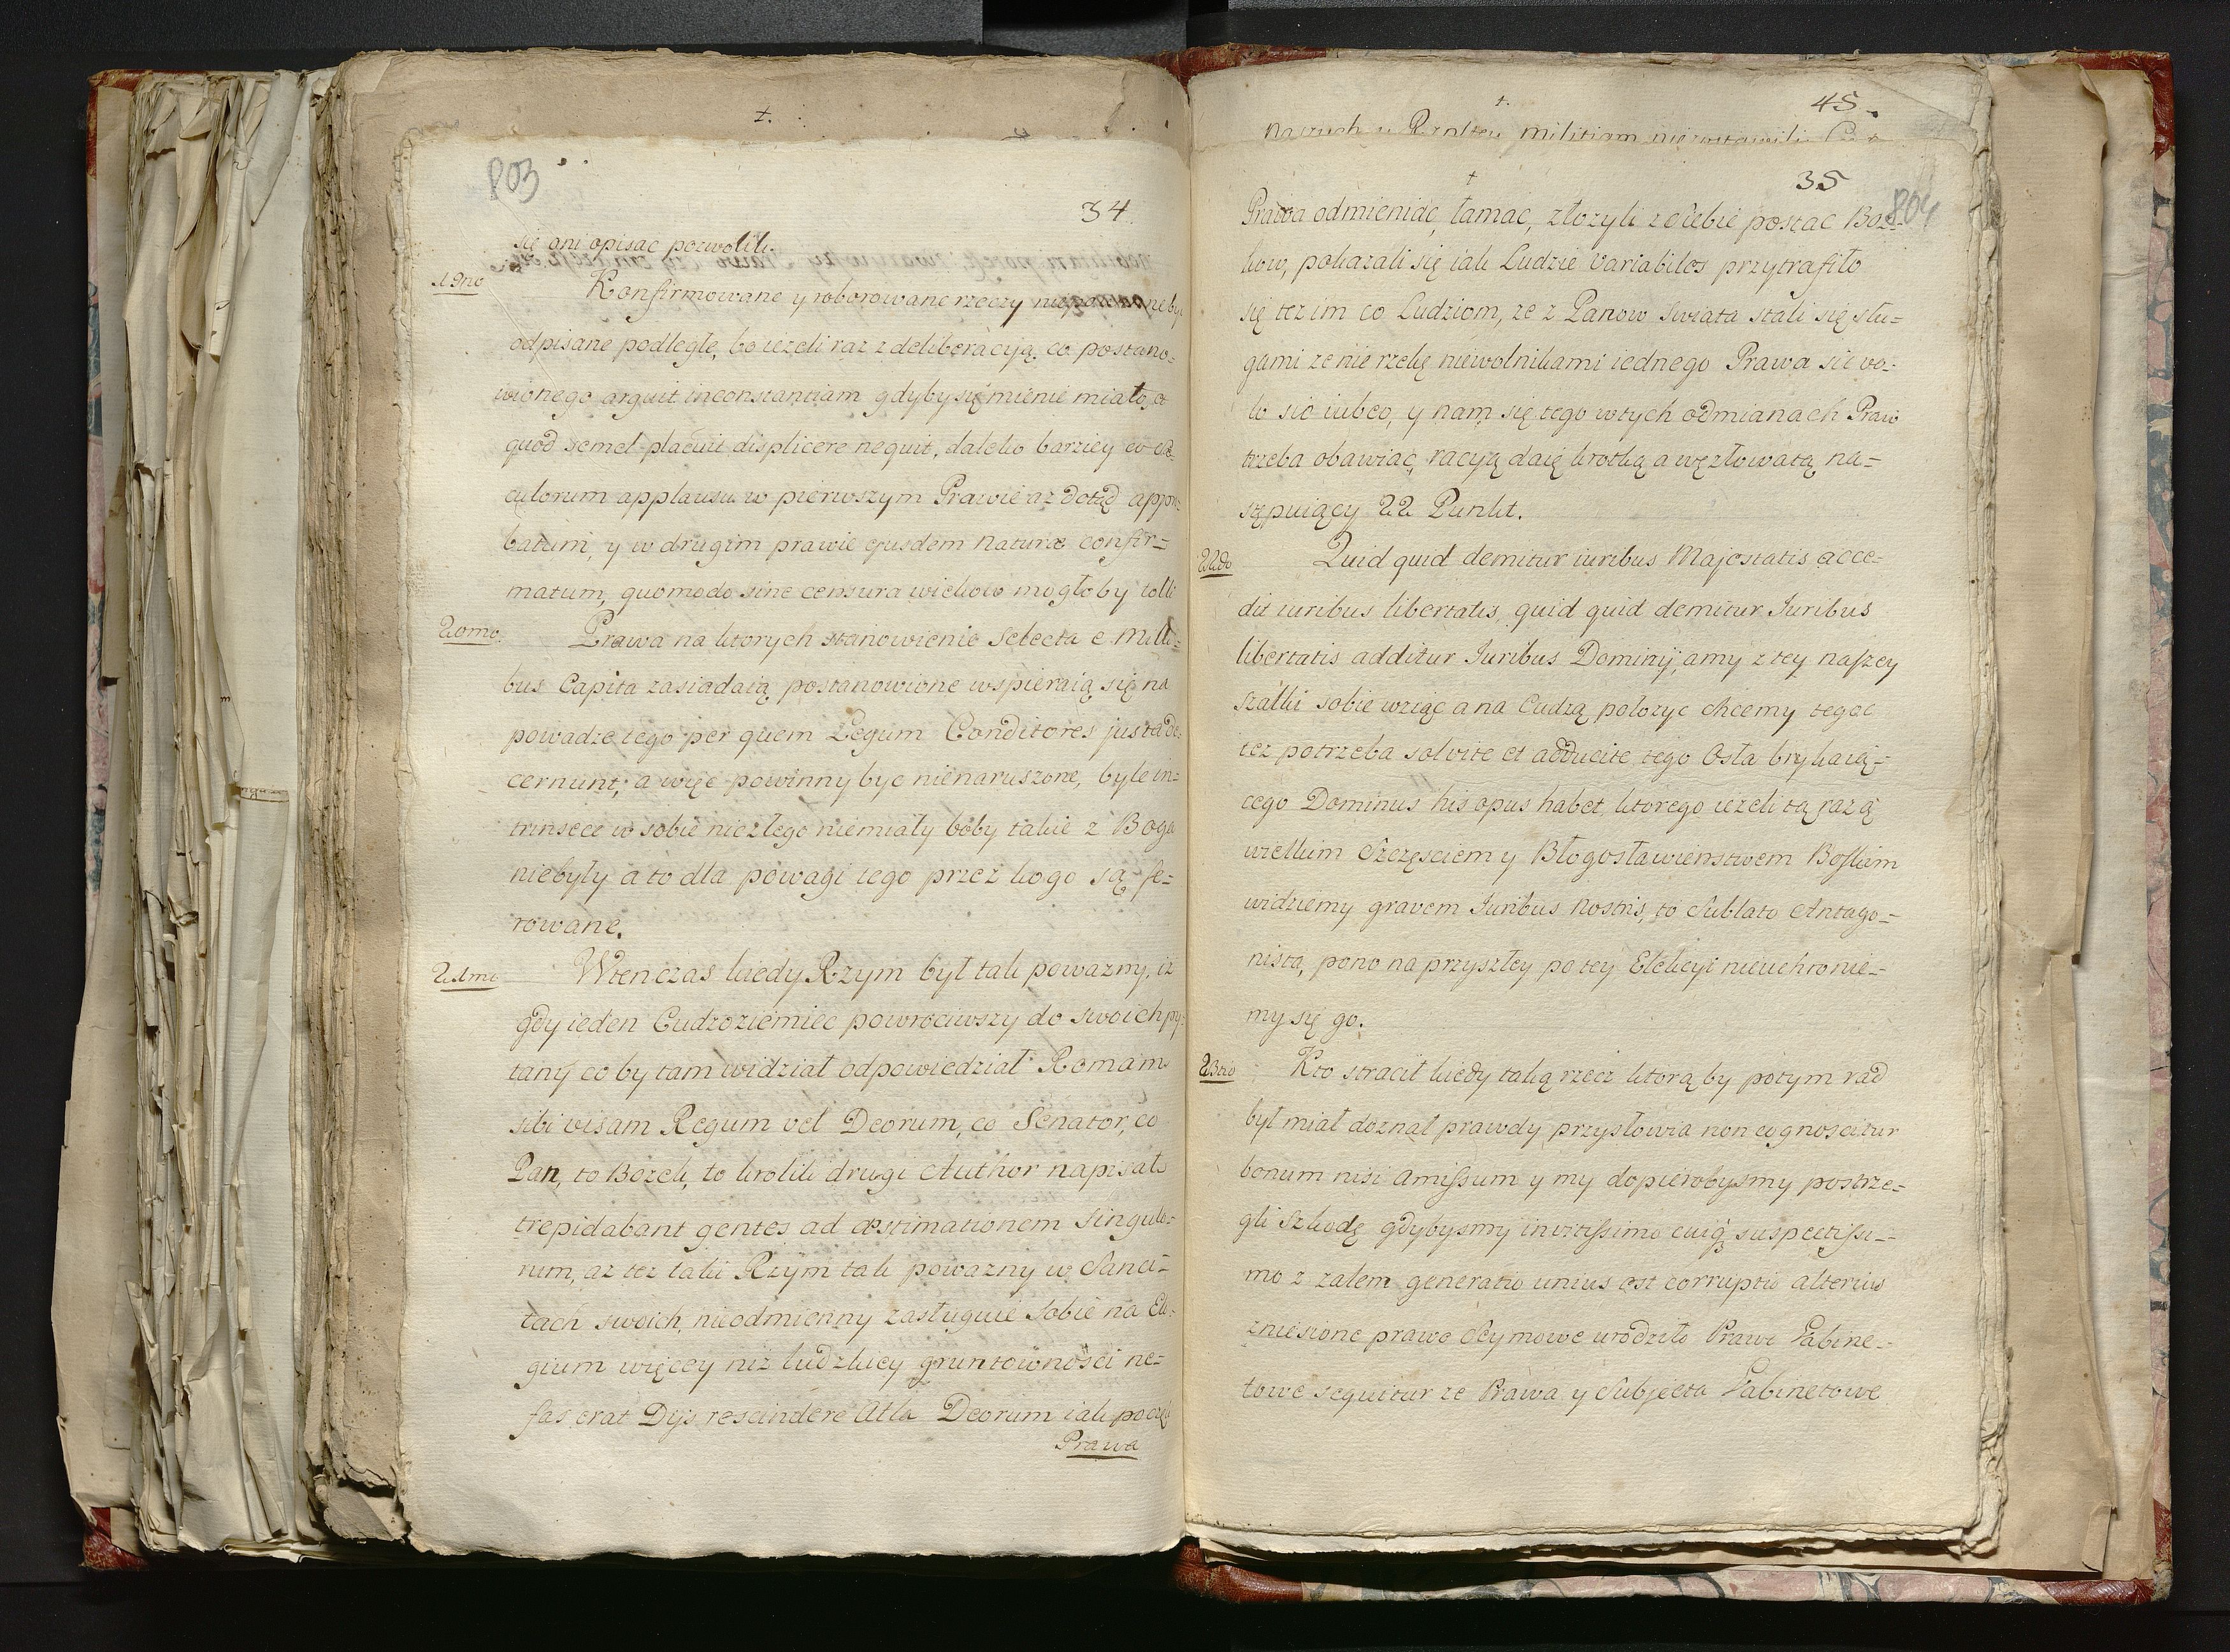 803
34.
się oni opisac pozwolili.
19no Konfirmowane y roborowane rzeczy
odpisane podległe, bo iezeli raz z deliberacyją co postano=
wionego arguit inconstantiam gdyby się mienic miało, et
quod semel placuit displicere nequit, daleko barziey
culorum applausu w pierwszym Prawie az dotąd appro=
batum, y w drugim prawie ejusdem naturæ confir=
matum, quomodo sine censura wiekow mogłoby tolli
20mo. Prawa na ktorych stanowienie selecta e milli=
bus Capita zasiadaią postanowione wspieraią się na
powadze tego per quem Legum Conditores justa de=
cernunt; a więc powinny byc nienaruszone, byle in=
trinsece w sobie nic złego niemiały boby takie z Boga
niebyły a to dla powagi tego przez kogo są fe=
rowane.
21mo Wtenczas kiedy Rzym był tak powazny, iz
gdy ieden Cudzoziemiec powrociwszy do swoich py=
tany co by tam widział odpowiedział Romam
sibi visam Regum vel Deorum, co Senator, co
Pan, to Bozek, to krolik drugi Author napisał
trepidabant gentes ad æstimationem singulo=
rum, az tez taki Rzym tak powazny w Sanci=
tach swoich, nieodmienny zasługuie sobie na Elo=
gium więcey niz ludzkiey gruntowności ne=
fas erat Dijs rescindere Acta Deorum iak począł
Prawa
45.
naszych u Rzpltey militiam niezostawili
35
804
Prawa odmieniac, łamac, złozyli z siebie postac Boz=
kow, pokazali się iak Ludzie variabiles przytrafiło
się tez im co Ludziom, ze z Panow Swiata stali się słu=
gami ze nie rzekę niewolnikami iednego Prawa sic vo=
lo sic iubeo, y nam się tego w tych odmianach Praw
trzeba obawiac, racyą daię krotką a węzłowatą na=
stępuiący 22 Punkt.
22do Quid quid demitur iuribus Majestatis acce=
dit iuribus libertatis, quid quid demitur Iuribus
libertatis additur Iuribus Dominij, a my z tey naszey
szalki sobie wziąc a na Cudzą polozyc chcemy tegoc
tez potrzeba solvite et adducite tego Osła brykaią=
cego Dominus his opus habet, ktorego iezeli tą razą
wielkim Szczęsciem y Błogosławienstwem Boskim
widziemy gravem Iuribus nostris, to sublato Antago=
nista, pono na przyszłey po tey Elekcyi nieuchronie=
my się go.
23tio Kto stracił kiedy taką rzecz ktorą by potym rad
był miał doznał prawdy przysłowia non cognoscitur
bonum nisi amissum y my dopierobysmy postrze=
gli Szkodę gdybysmy invitissimo cuiq suspectissi=
mo z zalem generatio unius est corruptio alterius
zniesione prawo Seymowe urodziło Prawo Gabine=
towe sequitur ze Prawa y Subjecta Gabinetowe